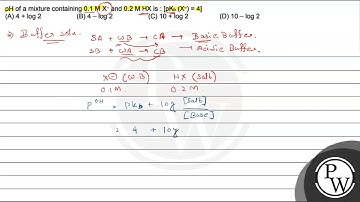 pH of a mixture containing 0.1 M X⁻ and 0.2 M HX is : [pK_b (X⁻) = 4]
(A) 4 + log 2 (B) 4 – log 2 (C) 10 + log 2 (D) 10 – log 2
⇒ Buffer soln. SA + WB → CA → Basic Buffer.
SB + WA → CB → Acidic Buffer.
X⊖ (W.B) HX (Salt)
0.1M. 0.2M
pOH = pKb + log [Salt]/[Base]
= 4 + log
PW